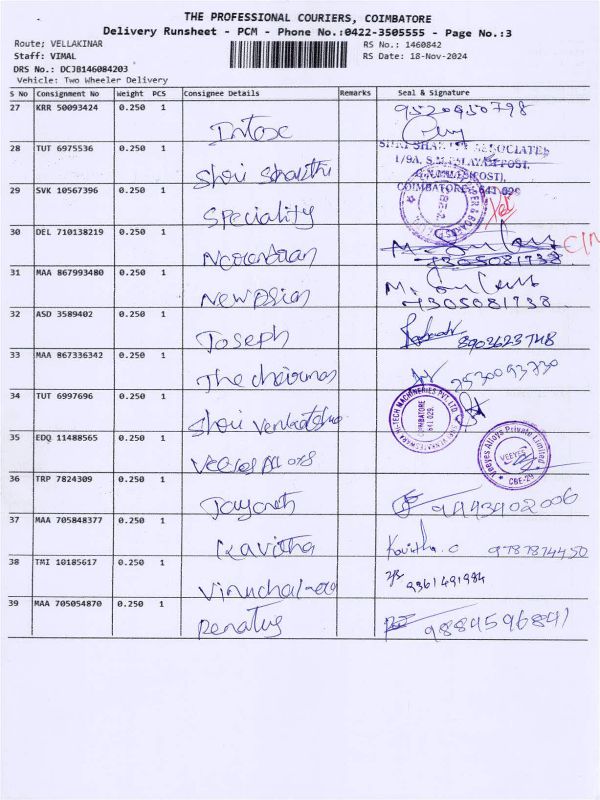 THE PROFESSIONAL COURIERS, COIMBATORE
Delivery Runsheet - PCM - Phone No.:0422-3505555 - Page No.:3
Route; VELLAKINAR RS No.: 1460842
Staff: VIMAL RS Date: 18-Nov-2024
DRS No.: DCJB146084203
Vehicle: Two Wheeler Delivery
S No Consignment No Weight PCS Consignee Details Remarks Seal & Signature
27 KRR 50093424 0.250 1 Intox 9520950798
28 TUT 6975536 0.250 1 Shri Shakthi
ASSOCIATES
1/9A,
COIMBATORE
29 SVK 10567396 0.250 1 Speciality
30 DEL 710138219 0.250 1 7305081738
31 MAA 867993480 0.250 1 New Asian M. 7305081738
32 ASD 3589402 0.250 1 Joseph 8903623748
33 MAA 867336342 0.250 1 The chairman 2530093730
34 TUT 6997696 0.250 1 Shri
HI-TECH MACHINERIES PVT. LTD
COIMBATORE
641 029.
35 EDQ 11488565 0.250 1
Veeyes Alloys Private Limited
VEEYES
CBE-29
36 TRP 7824309 0.250 1 Jayanth 9443402006
37 MAA 705848377 0.250 1 Kavitha Kavitha. C 9787874450
38 TMI 10185617 0.250 1 9361491984
39 MAA 705054870 0.250 1 Renatus 9884596841